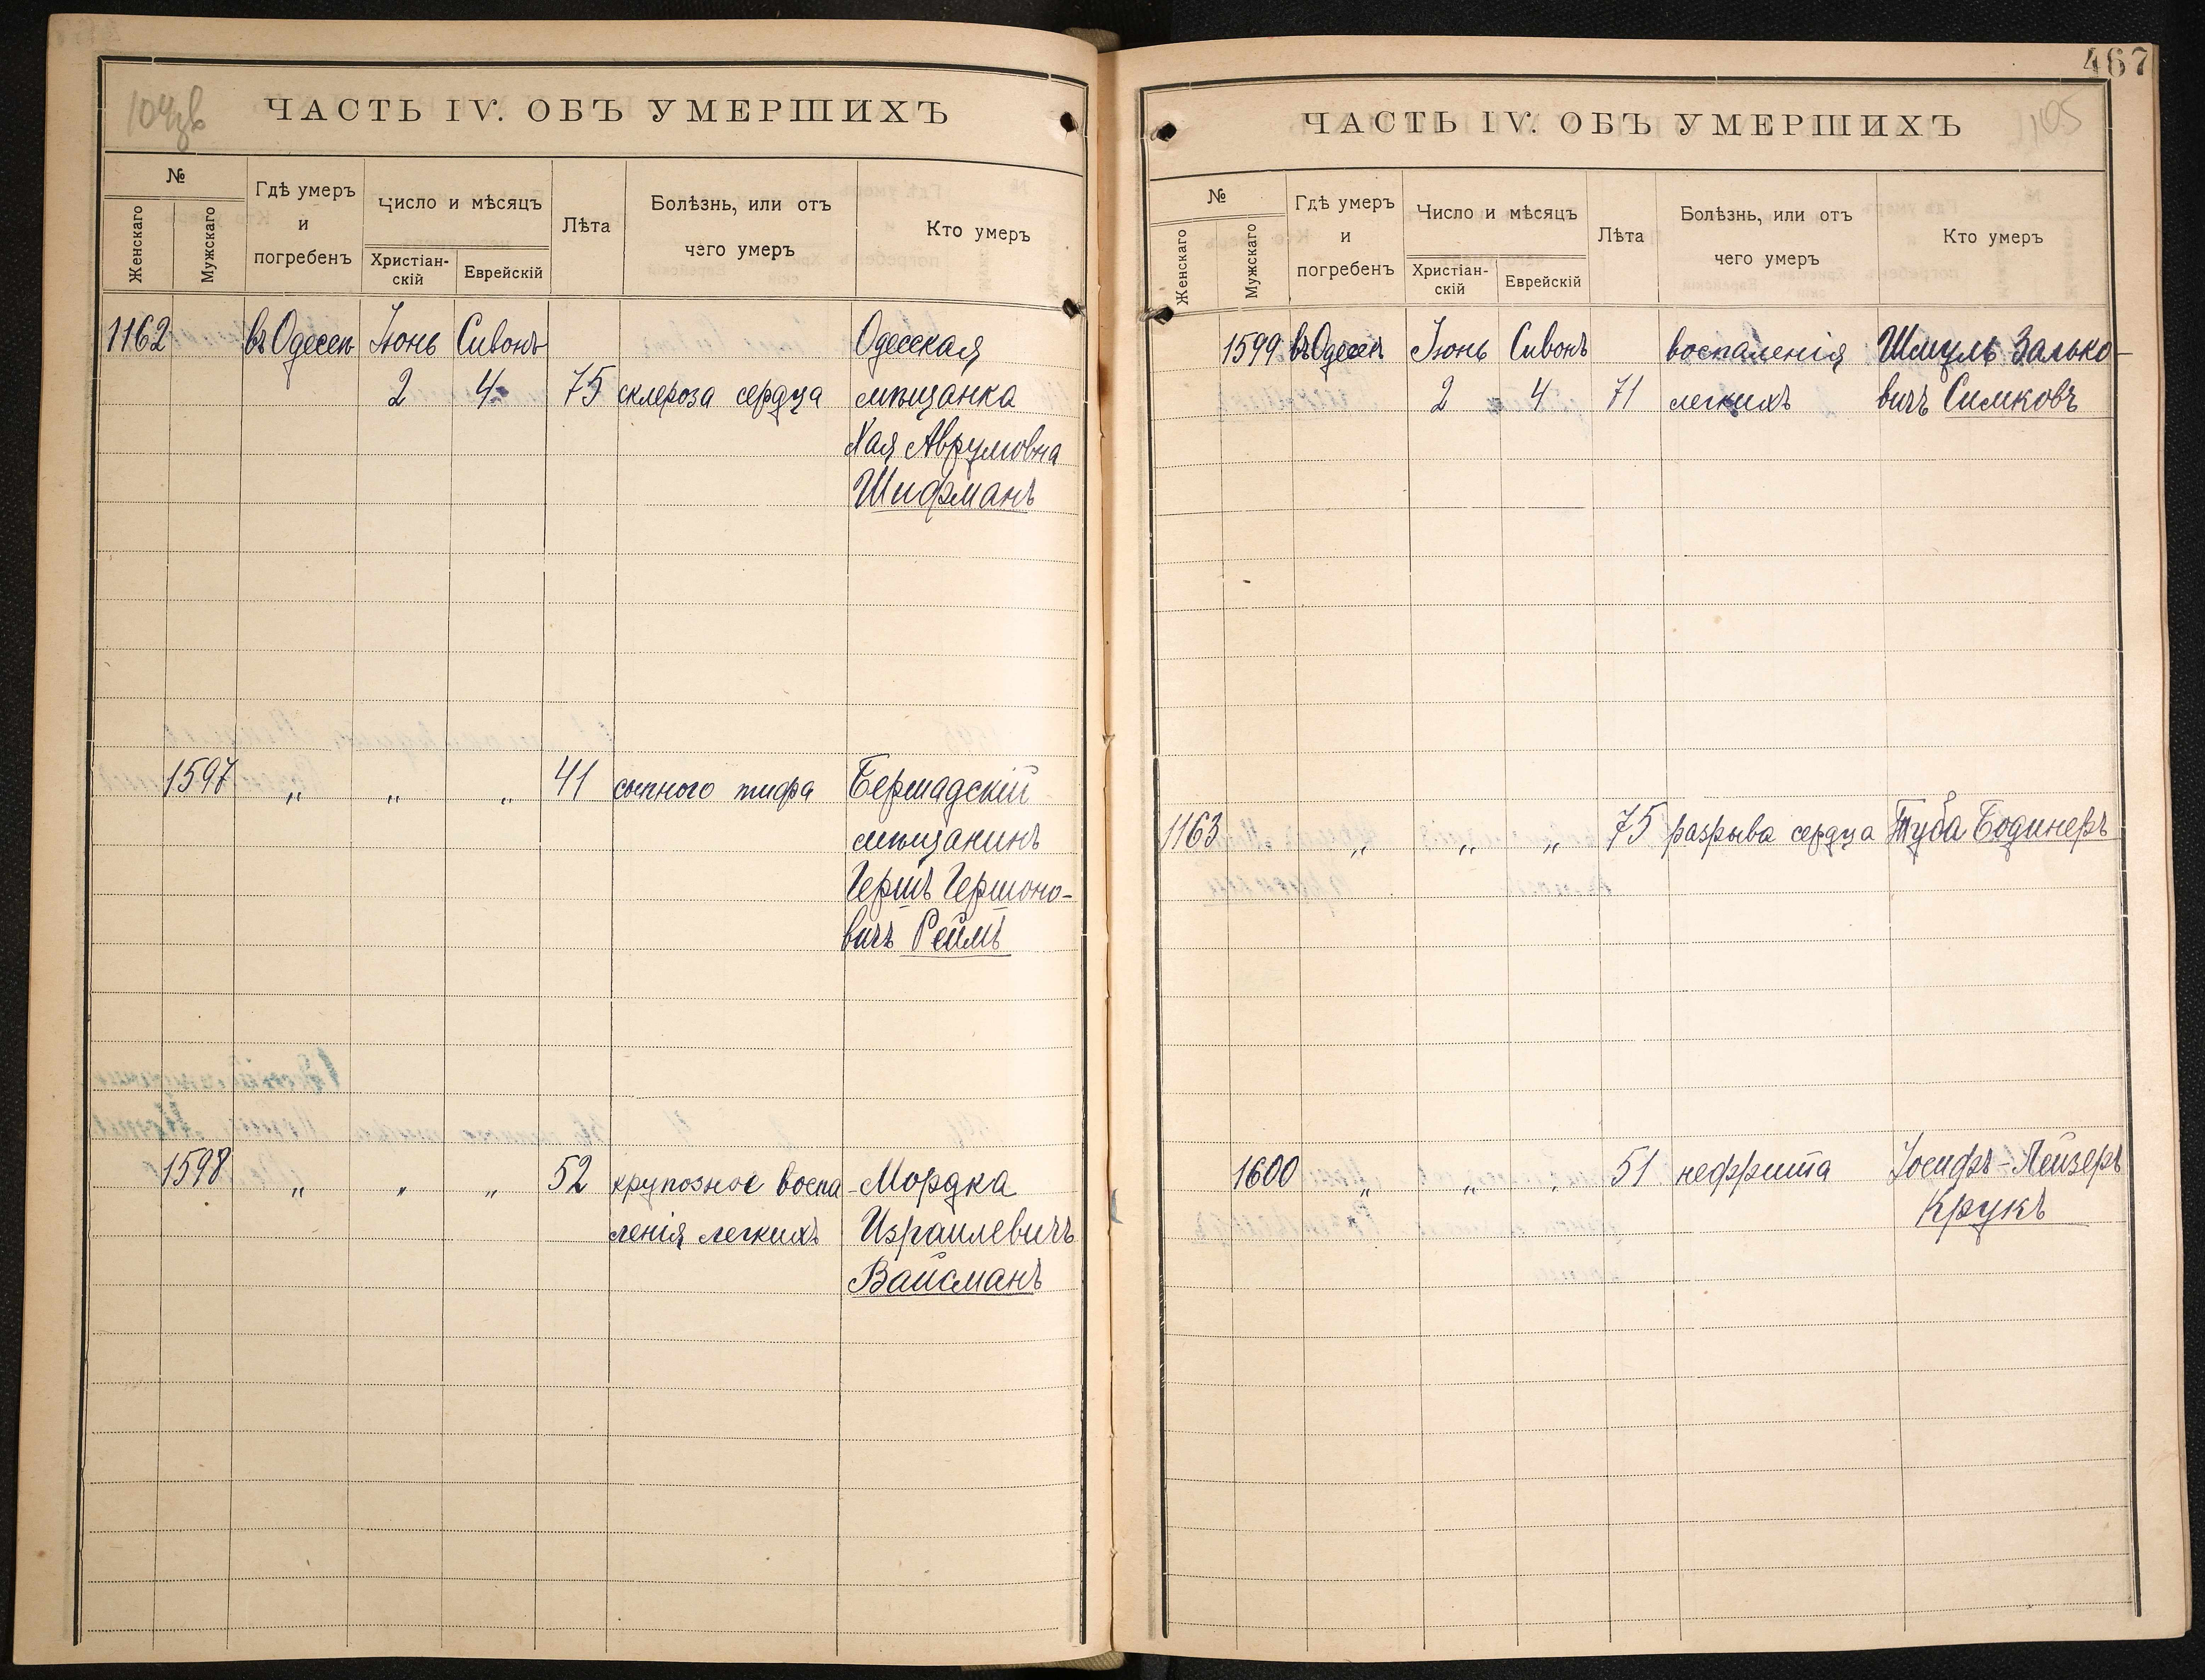 104об
ЧАСТЬ IV. ОБЪ УМЕРШИХЪ
№
Женскаго
Мужскаго
Гдѣ умеръ
и
погребенъ
Число и мѣсяцъ
Христіан-
скій
Еврейскій
Лѣта
Болѣзнь, или отъ
чего умеръ
Кто умеръ
1162 въ Одессѣ Іюнь Сивонъ Одесская
2 4 75 склероза сердца мѣщанка
Хая Аврумовна
Шифманъ
1597 " " " 41 сыпного тифа Бершадскій
мѣщанинъ
Гершъ Гершоно-
вичъ Реймъ
1598 " " " 52 крупозное воспа- Мордка
ленія легкихъ Израилевичъ
Вайсманъ
467
105
ЧАСТЬ IV. ОБЪ УМЕРШИХЪ
№
Женскаго
Мужскаго
Гдѣ умеръ
и
погребенъ
Число и мѣсяцъ
Христіан-
скій
Еврейскій
Лѣта
Болѣзнь, или отъ
чего умеръ
Кто умеръ
1599 въ Одессѣ Іюнь Сивонъ воспаленія Шмуль Залько-
2 4 71 легкихъ вичъ Симковъ
1163 " " " 75 разрыва сердца Туба Бодинеръ
1600 " " " 51 нефрита Іосифъ-Лейзеръ
Крукъ